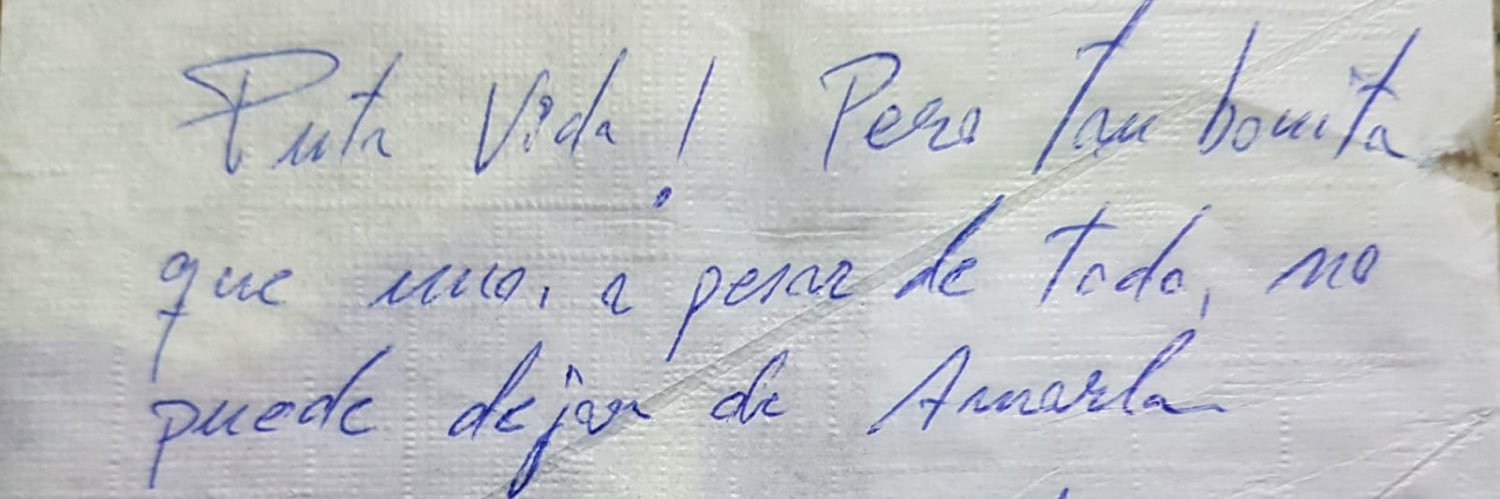 Puta Vida! Pero Tan bonita
que uno, a pesar de Todo, no
puede dejar de Amarla